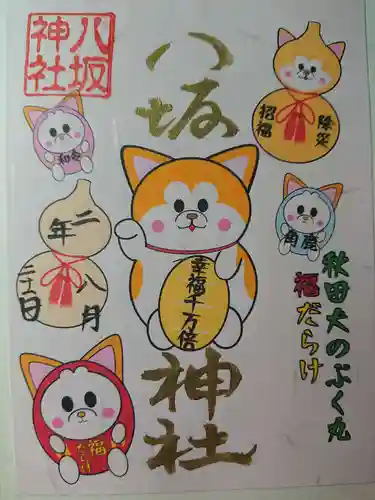 八坂
神社
八坂
神社
除災
招福
令和
二年
八月
鹿角
幸福千万倍
秋田犬のぶく丸
福だらけ
福
だらけ